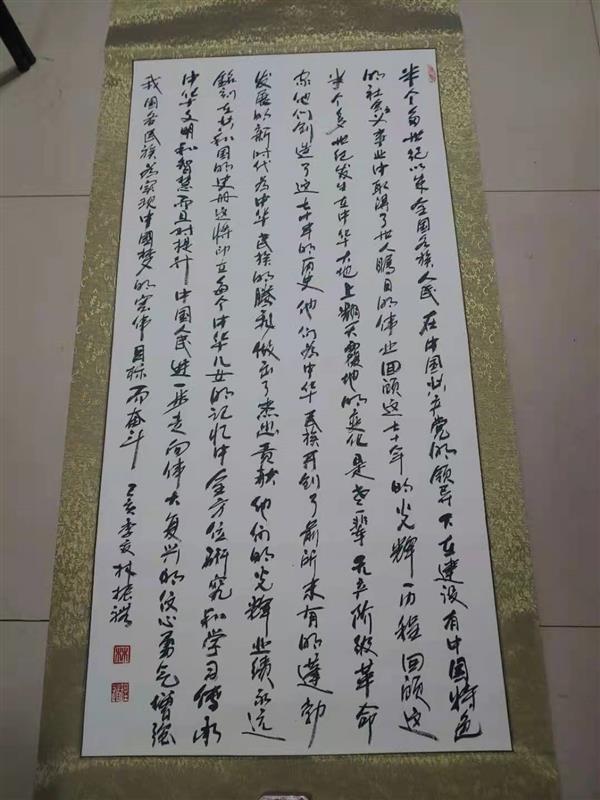 半个多世纪以来全国各族人民在中国共产党的领导下在建设有中国特色
的社会主义事业中取得了世人瞩目的伟业回顾这七十年的光辉历程回顾这
半个多世纪发生在中华大地上翻天覆地的变化是老一辈无产阶级革命
家他们创造了这七十年的历史他们为中华民族开创了前所未有的蓬勃
发展的新时代为中华民族的腾飞做出了杰出贡献他们的光辉业绩永远
铭刻在共和国的史册这将印在每个中华儿女的记忆中全方位研究和学习传承
中华文明和智慧而且对提升中国人民进一步走向伟大复兴的信心勇气增强
我国各民族为实现中國梦的宏伟目标而奋斗 己亥季夏 林振